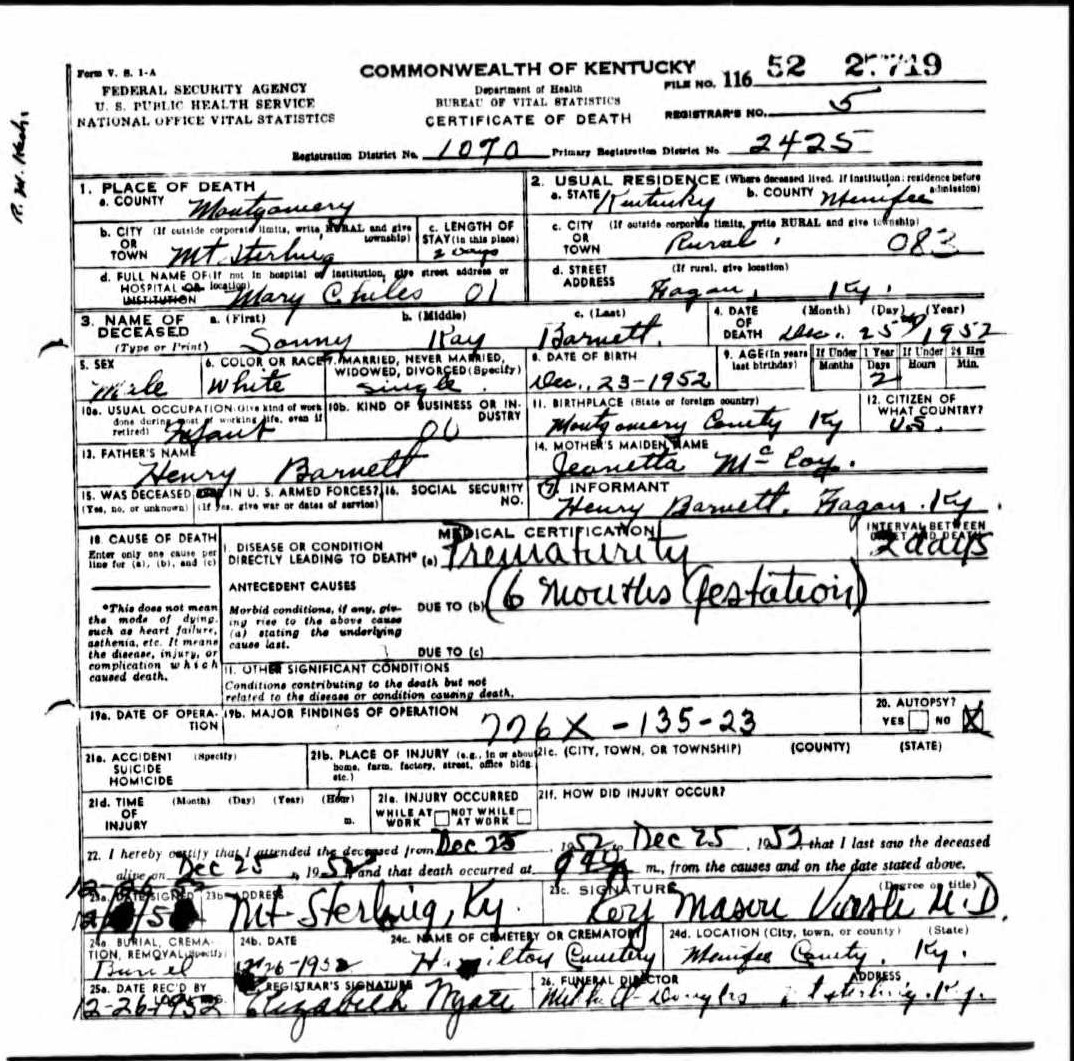 Form V. S. 1-A
COMMONWEALTH OF KENTUCKY
FILE NO. 116 52 27719
FEDERAL SECURITY AGENCY
U. S. PUBLIC HEALTH SERVICE
NATIONAL OFFICE VITAL STATISTICS
Department of Health
BUREAU OF VITAL STATISTICS
CERTIFICATE OF DEATH
REGISTRAR'S NO. 5
Registration District No. 1070 Primary Registration District No. 2425
1. PLACE OF DEATH
a. COUNTY Montgomery
2. USUAL RESIDENCE (Where deceased lived. If institution: residence before admission)
a. STATE Kentucky b. COUNTY Menifee
b. CITY (If outside corporate limits, write RURAL and give township)
OR
TOWN Mt. Sterling
c. LENGTH OF
STAY (in this place)
2 days
c. CITY (If outside corporate limits, write RURAL and give township)
OR
TOWN Rural. 083
d. FULL NAME OF (If not in hospital or institution, give street address or
HOSPITAL OR location)
INSTITUTION Mary Chiles 01
d. STREET (If rural, give location)
ADDRESS Fagan, Ky.
3. NAME OF
DECEASED
(Type or Print)
a. (First) b. (Middle) c. (Last)
Sonny Ray Barnett.
4. DATE (Month) (Day) (Year)
OF
DEATH Dec. 25 1952
5. SEX
Male
6. COLOR OR RACE
White
7. MARRIED, NEVER MARRIED,
WIDOWED, DIVORCED (Specify)
Single.
8. DATE OF BIRTH
Dec. 23-1952
9. AGE (In years
last birthday)
If Under 1 Year
Months Days
2
If Under 24 Hrs
Hours Min.
10a. USUAL OCCUPATION (Give kind of work
done during most of working life, even if
retired) Infant
10b. KIND OF BUSINESS OR IN-
DUSTRY
00
11. BIRTHPLACE (State or foreign country)
Montgomery County Ky
12. CITIZEN OF
WHAT COUNTRY?
U.S.
13. FATHER'S NAME
Henry Barnett
14. MOTHER'S MAIDEN NAME
Jeanetta McCoy.
15. WAS DECEASED EVER IN U. S. ARMED FORCES?
(Yes, no, or unknown) (If yes, give war or dates of service)
16. SOCIAL SECURITY
NO.
17. INFORMANT
Henry Barnett, Fagan, Ky.
18. CAUSE OF DEATH
Enter only one cause per
line for (a), (b), and (c)
MEDICAL CERTIFICATION
I. DISEASE OR CONDITION
DIRECTLY LEADING TO DEATH* (a) Prematurity
INTERVAL BETWEEN
ONSET AND DEATH
2 days
*This does not mean
the mode of dying,
such as heart failure,
asthenia, etc. It means
the disease, injury, or
complication which
caused death.
ANTECEDENT CAUSES
Morbid conditions, if any, giv-
ing rise to the above cause
(a) stating the underlying
cause last.
DUE TO (b) (6 Months Gestation)
DUE TO (c)
11. OTHER SIGNIFICANT CONDITIONS
Conditions contributing to the death but not
related to the disease or condition causing death.
19a. DATE OF OPERA-
TION
19b. MAJOR FINDINGS OF OPERATION
776X - 135-23
20. AUTOPSY?
YES NO X
21a. ACCIDENT (Specify)
SUICIDE
HOMICIDE
21b. PLACE OF INJURY (e.g., in or about
home, farm, factory, street, office bldg.
etc.)
21c. (CITY, TOWN, OR TOWNSHIP) (COUNTY) (STATE)
21d. TIME (Month) (Day) (Year) (Hour)
OF
INJURY m.
21e. INJURY OCCURRED
WHILE AT NOT WHILE
WORK AT WORK
21f. HOW DID INJURY OCCUR?
22. I hereby certify that I attended the deceased from Dec 23, 1952 to Dec 25, 1952 that I last saw the deceased
alive on Dec 25, 1952 and that death occurred at m., from the causes and on the date stated above.
23a. DATE SIGNED
23b. ADDRESS
Mt Sterling, Ky.
23c. SIGNATURE (Degree or title)
Mason M.D.
24a. BURIAL, CREMA-
TION, REMOVAL (Specify)
Buriel
24b. DATE
12-26-1952
24c. NAME OF CEMETERY OR CREMATORY
Hamilton Cemetery
24d. LOCATION (City, town, or county) (State)
Menifee County, Ky.
25a. DATE REC'D BY
12-26-1952
REGISTRAR'S SIGNATURE
Elizabeth Wyatt
26. FUNERAL DIRECTOR ADDRESS
Mt Sterling, Ky.